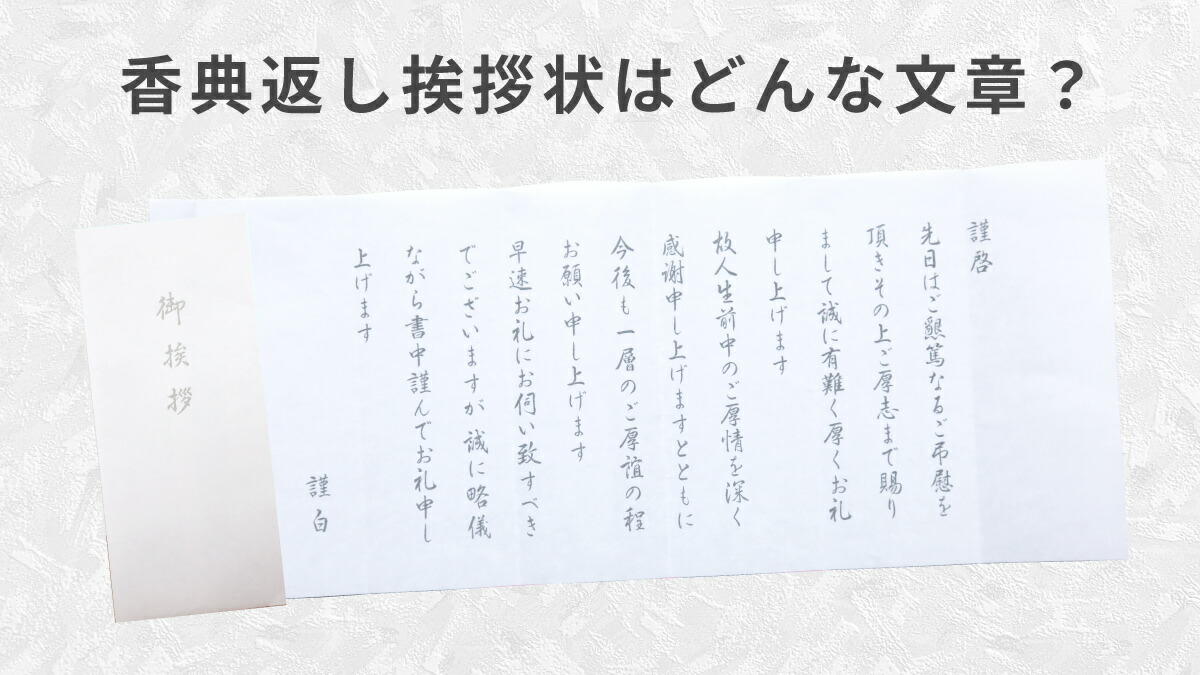 香典返し挨拶状はどんな文章？
謹啓
先日はご懇篤なるご弔慰を
頂きその上ご厚志まで賜り
まして誠に有難く厚くお礼
申し上げます
故人生前中のご厚情を深く
感謝申し上げますとともに
今後も一層のご厚誼の程
お願い申し上げます
早速お礼にお伺い致すべき
でございますが誠に略儀
ながら書中謹んでお礼申し
上げます
謹白
御挨拶